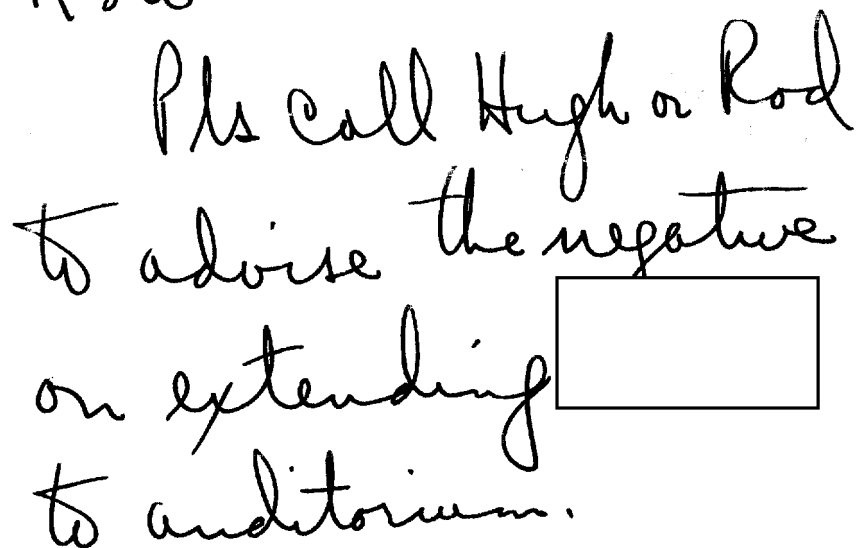 Pls call Hugh or Rod
to advise the negative
on extending
to auditorium.